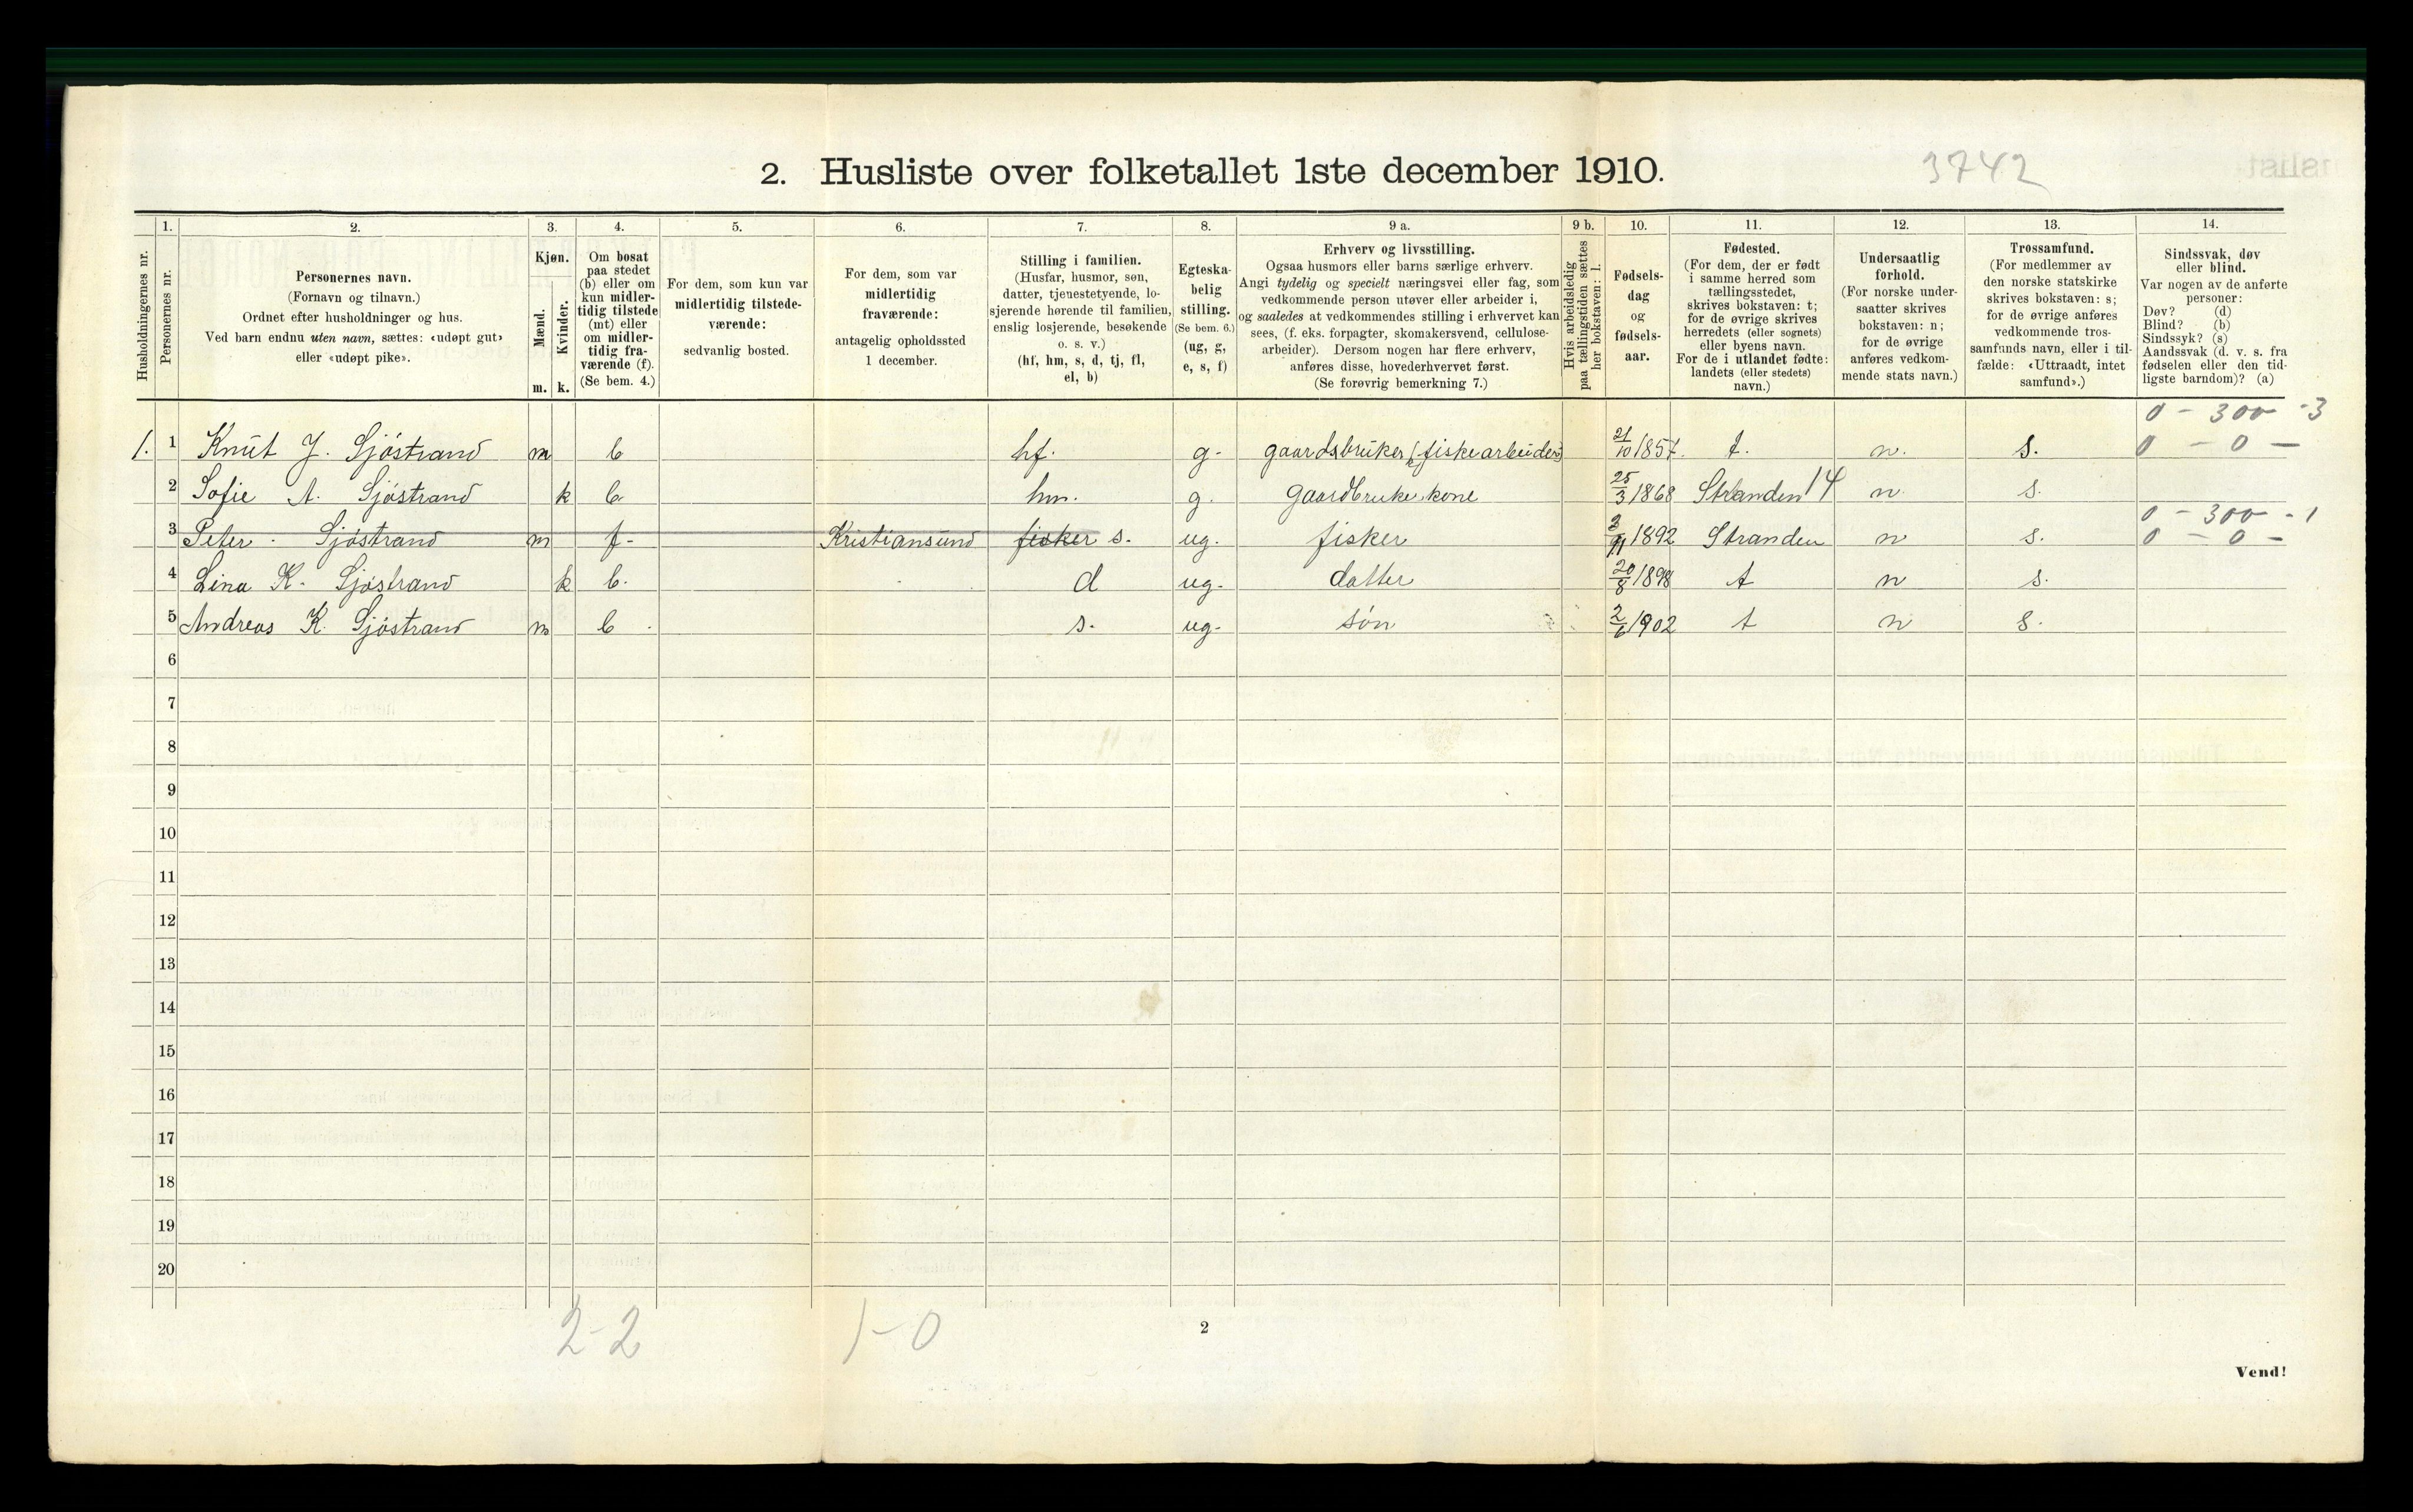 2. Husliste over folketallet 1ste december 1910.
3742
1. 2. 3. 4. 5. 6. 7. 8. 9 a. 9 b. 10. 11. 12. 13. 14.
Husholdningernes nr.
Personernes nr.
Personernes navn.
(Fornavn og tilnavn.)
Ordnet efter husholdninger og hus.
Ved barn endnu uten navn, sættes: «udøpt gut»
eller «udøpt pike».
Kjøn.
Mænd.
Kvinder.
m. k.
Om bosat
paa stedet
(b) eller om
kun midler-
tidig tilstede
(mt) eller
om midler-
tidig fra-
værende (f).
(Se bem. 4.)
For dem, som kun var
midlertidig tilstede-
værende:
sedvanlig bosted.
For dem, som var
midlertidig
fraværende:
antagelig opholdssted
1 december.
Stilling i familien.
(Husfar, husmor, søn,
datter, tjenestetyende, lo-
sjerende hørende til familien,
enslig losjerende, besøkende
o. s. v.)
(hf, hm, s, d, tj, fl,
el, b)
Egteska-
belig
stilling.
(Se bem. 6.)
(ug, g,
e, s, f)
Erhverv og livsstilling.
Ogsaa husmors eller barns særlige erhverv.
Angi tydelig og specielt næringsvei eller fag, som
vedkommende person utøver eller arbeider i,
og saaledes at vedkommendes stilling i erhvervet kan
sees, (f. eks. forpagter, skomakersvend, cellulose-
arbeider). Dersom nogen har flere erhverv,
anføres disse, hovederhvervet først.
(Se forøvrig bemerkning 7.)
Hvis arbeidsledig
paa tællingstiden sættes
her bokstaven: l.
Fødsels-
dag
og
fødsels-
aar.
Fødested.
(For dem, der er født
i samme herred som
tællingsstedet,
skrives bokstaven: t;
for de øvrige skrives
herredets (eller sognets)
eller byens navn.
For de i utlandet fødte:
landets (eller stedets)
navn.)
Undersaatlig
forhold.
(For norske under-
saatter skrives
bokstaven: n;
for de øvrige
anføres vedkom-
mende stats navn.)
Trossamfund.
(For medlemmer av
den norske statskirke
skrives bokstaven: s;
for de øvrige anføres
vedkommende tros-
samfunds navn, eller i til-
fælde: «Uttraadt, intet
samfund».)
Sindssvak, døv
eller blind.
Var nogen av de anførte
personer:
Døv? (d)
Blind? (b)
Sindssyk? (s)
Aandssvak (d. v. s. fra
fødselen eller den tid-
ligste barndom)? (a)
0 - 300 - 3
1. 1 Knut J. Sjöstrand m b hf. g. gaardsbruker (fiskearbeider) 21/10 1857. t. n. s. 0 - 0 -
2 Sofie A. Sjöstrand k b hm. g. gaardbruker kone 25/3 1868 Stranden 14 n. s.
0 - 300 - 1
3 Peter Sjöstrand m f Kristiansund fisker s. ug. fisker 1892 Stranden n s. 0 - 0 -
4 Lina K. Sjöstrand k b. d ug. datter 20/8 1898 t n s.
5 Andreas K. Sjöstrand m b s. ug. sön 2/6 1902 t n s.
6
7
8
9
10
11
12
13
14
15
16
17
18
19
20
2-2 1-0
2
Vend!